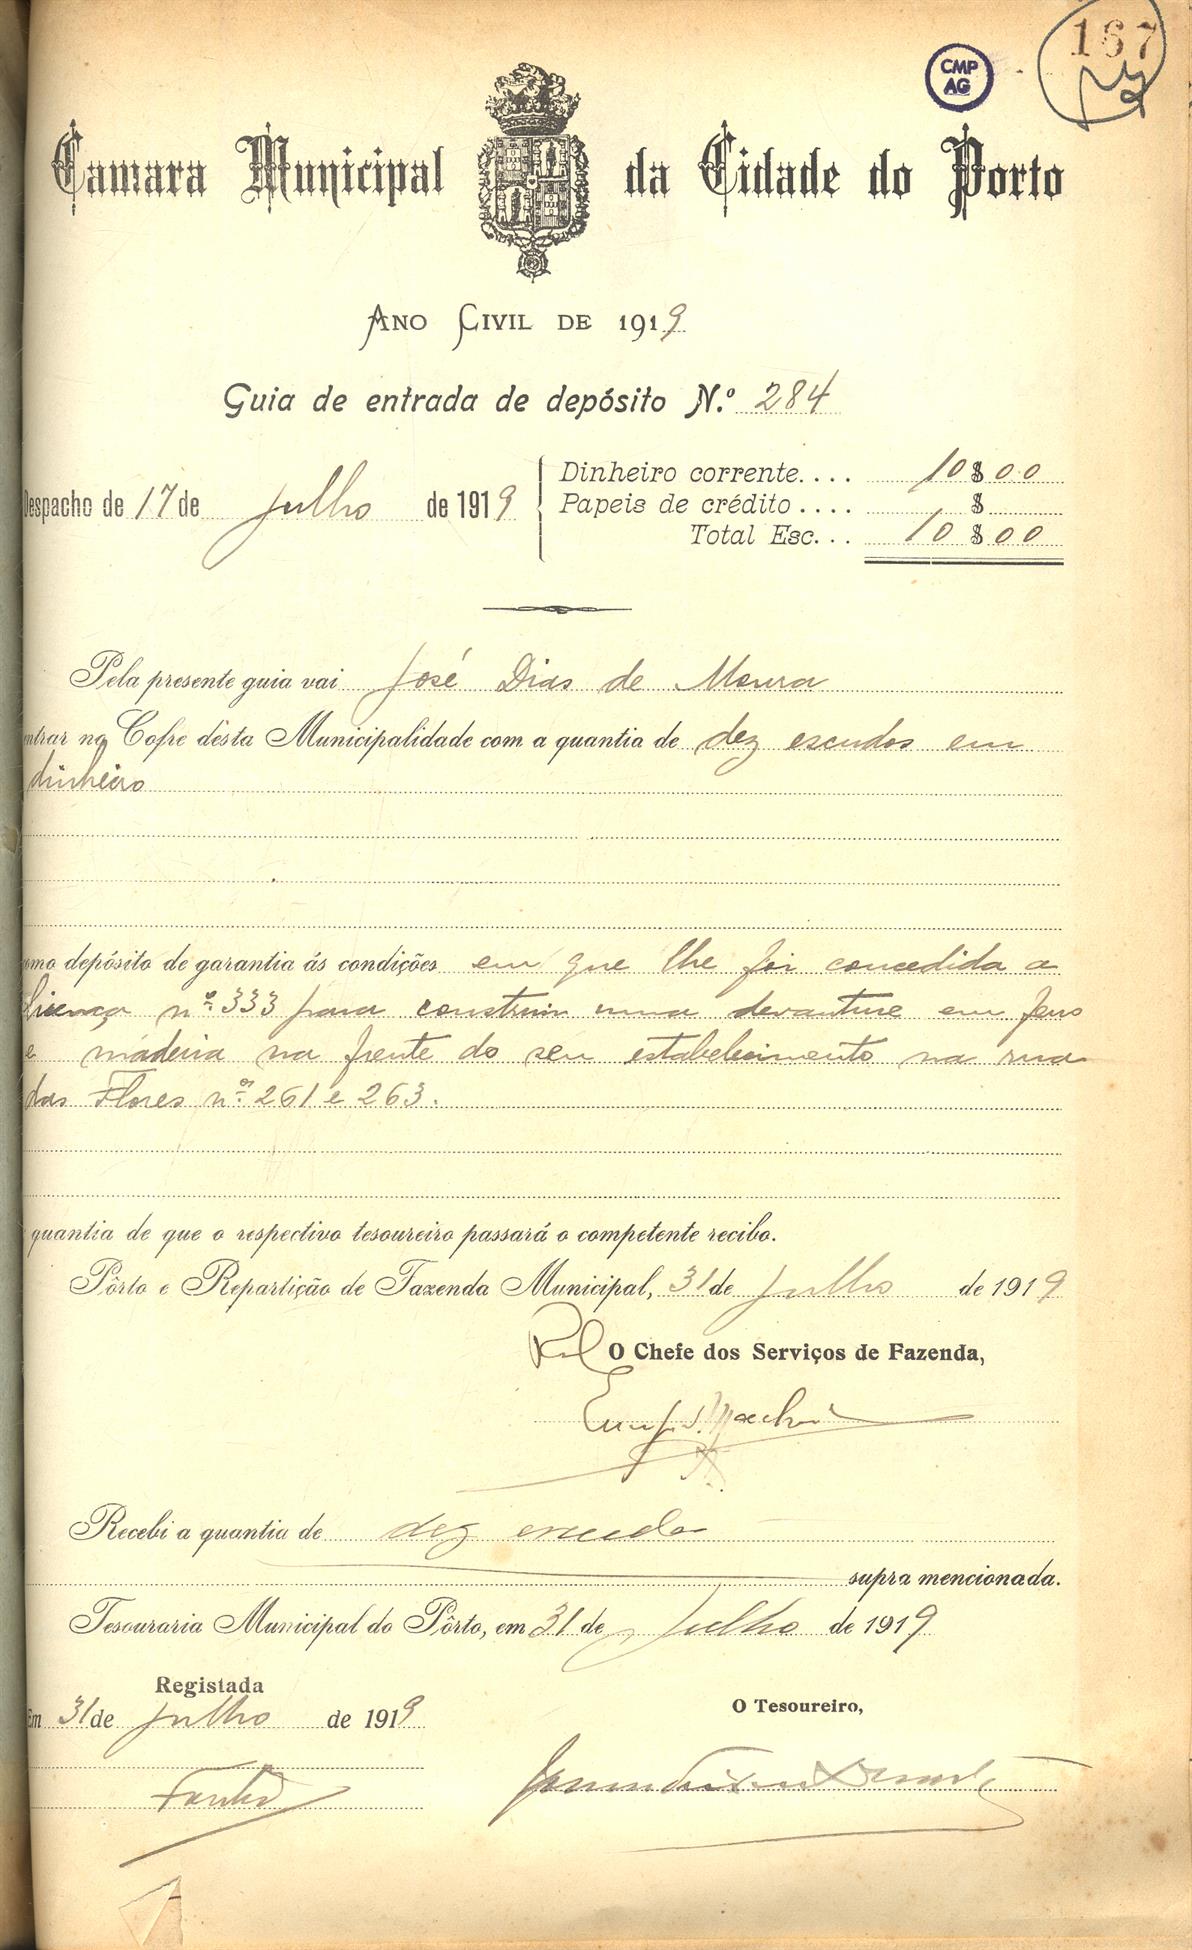 167
CMP
AG
Camara Municipal da Cidade do Porto
Ano Civil de 1919
Guia de entrada de depósito N.º 284
Despacho de 17 de Julho de 1919
Dinheiro corrente.... 10$00
Papeis de crédito.... $
Total Esc... 10$00
Pela presente guia vai José Dias de Moura
entrar no Cofre désta Municipalidade com a quantia de dez escudos em
dinheiro
como depósito de garantia ás condições em que lhe foi concedida a
licença nº 333 para construir uma devanture em ferro
e madeira na frente do seu estabelecimento na rua
das Flores nos. 261 e 263.
quantia de que o respectivo tesoureiro passará o competente recibo.
Pôrto e Repartição de Fazenda Municipal, 31 de Julho de 1919
O Chefe dos Serviços de Fazenda,
Recebi a quantia de dez escudos
supra mencionada.
Tesouraria Municipal do Pôrto, em 31 de Julho de 1919
Registada
Em 31 de Julho de 1919
O Tesoureiro,